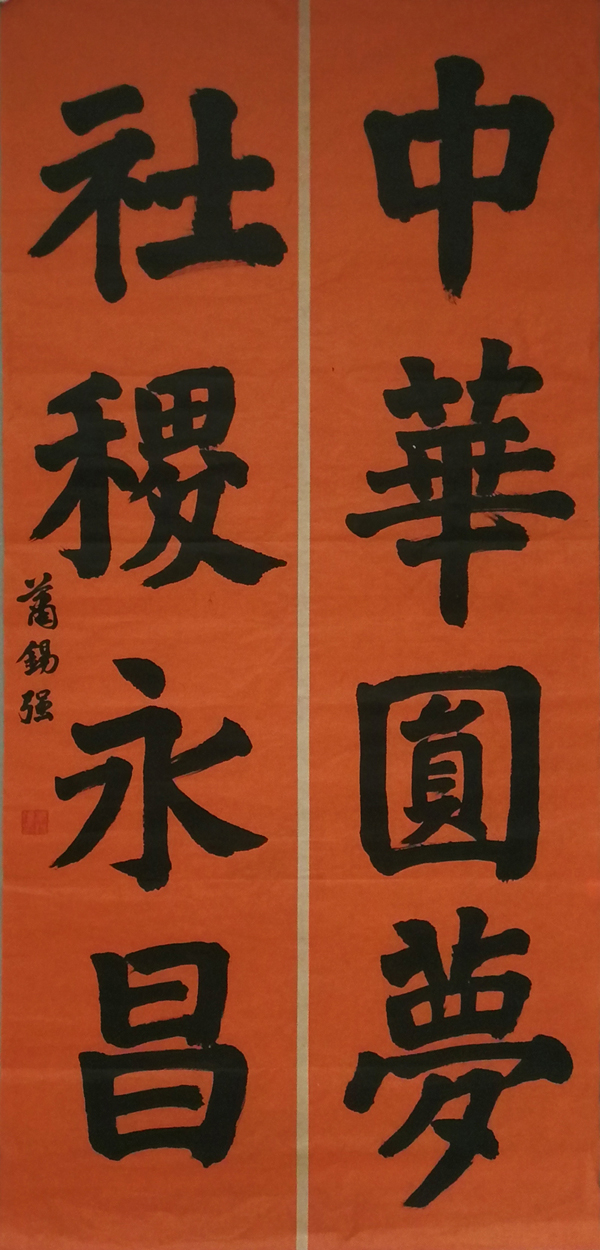 中華圓夢
社稷永昌
蕭錫强